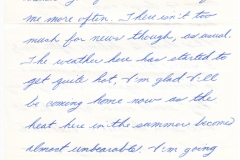 me more often. There isn't too
much for news though, as usual.
The weather here has started to
get quite hot, I'm glad I'll
be coming home now as the
heat here in the summer become
almost unbearable. I'm going